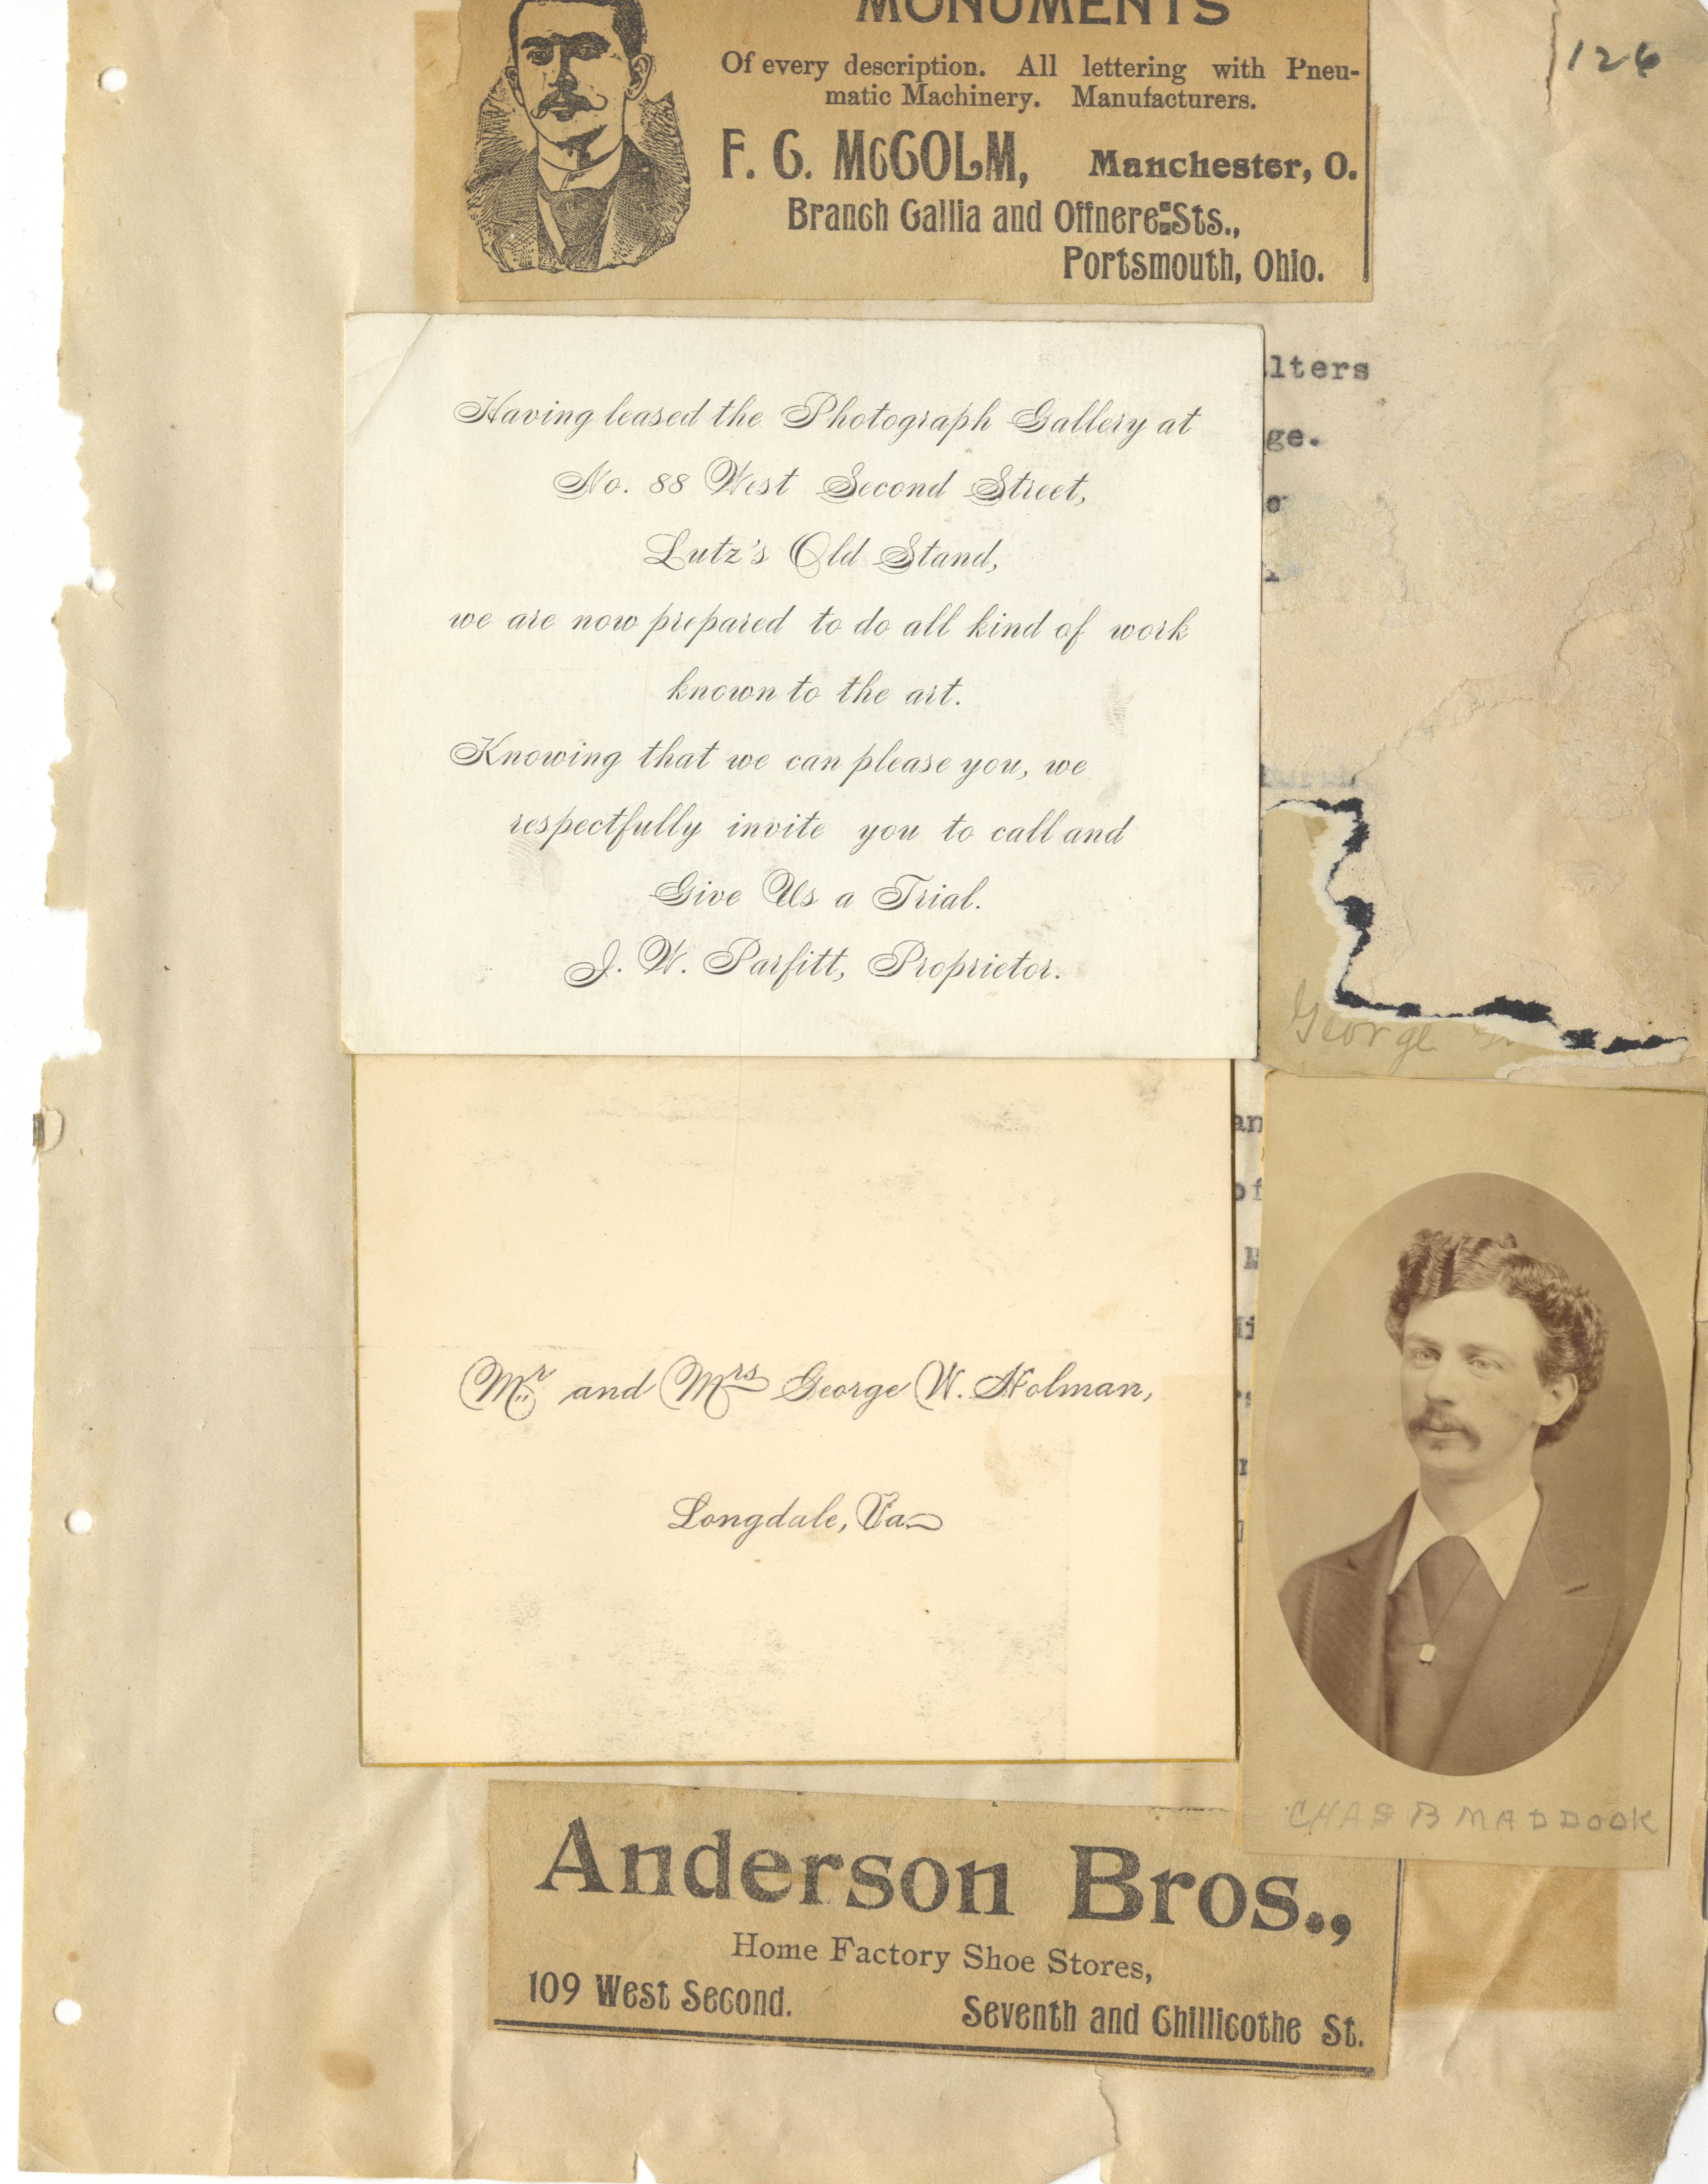 MONUMENTS
126
Of every description. All lettering with Pneu-
matic Machinery. Manufacturers.
F. G. McGOLM, Manchester, O.
Branch Gallia and Offnere Sts.,
Portsmouth, Ohio.
lters
ge.
Having leased the Photograph Gallery at
No. 88 West Second Street,
Lutz's Old Stand,
we are now prepared to do all kind of work
known to the art.
Knowing that we can please you, we
respectfully invite you to call and
Give Us a Trial.
J. W. Parfitt, Proprietor.
George
an
of
Mr. and Mrs George W. Holman,
Longdale, Va
CHAS B MADDOCK
Anderson Bros.,
Home Factory Shoe Stores,
109 West Second.
Seventh and Chillicothe St.